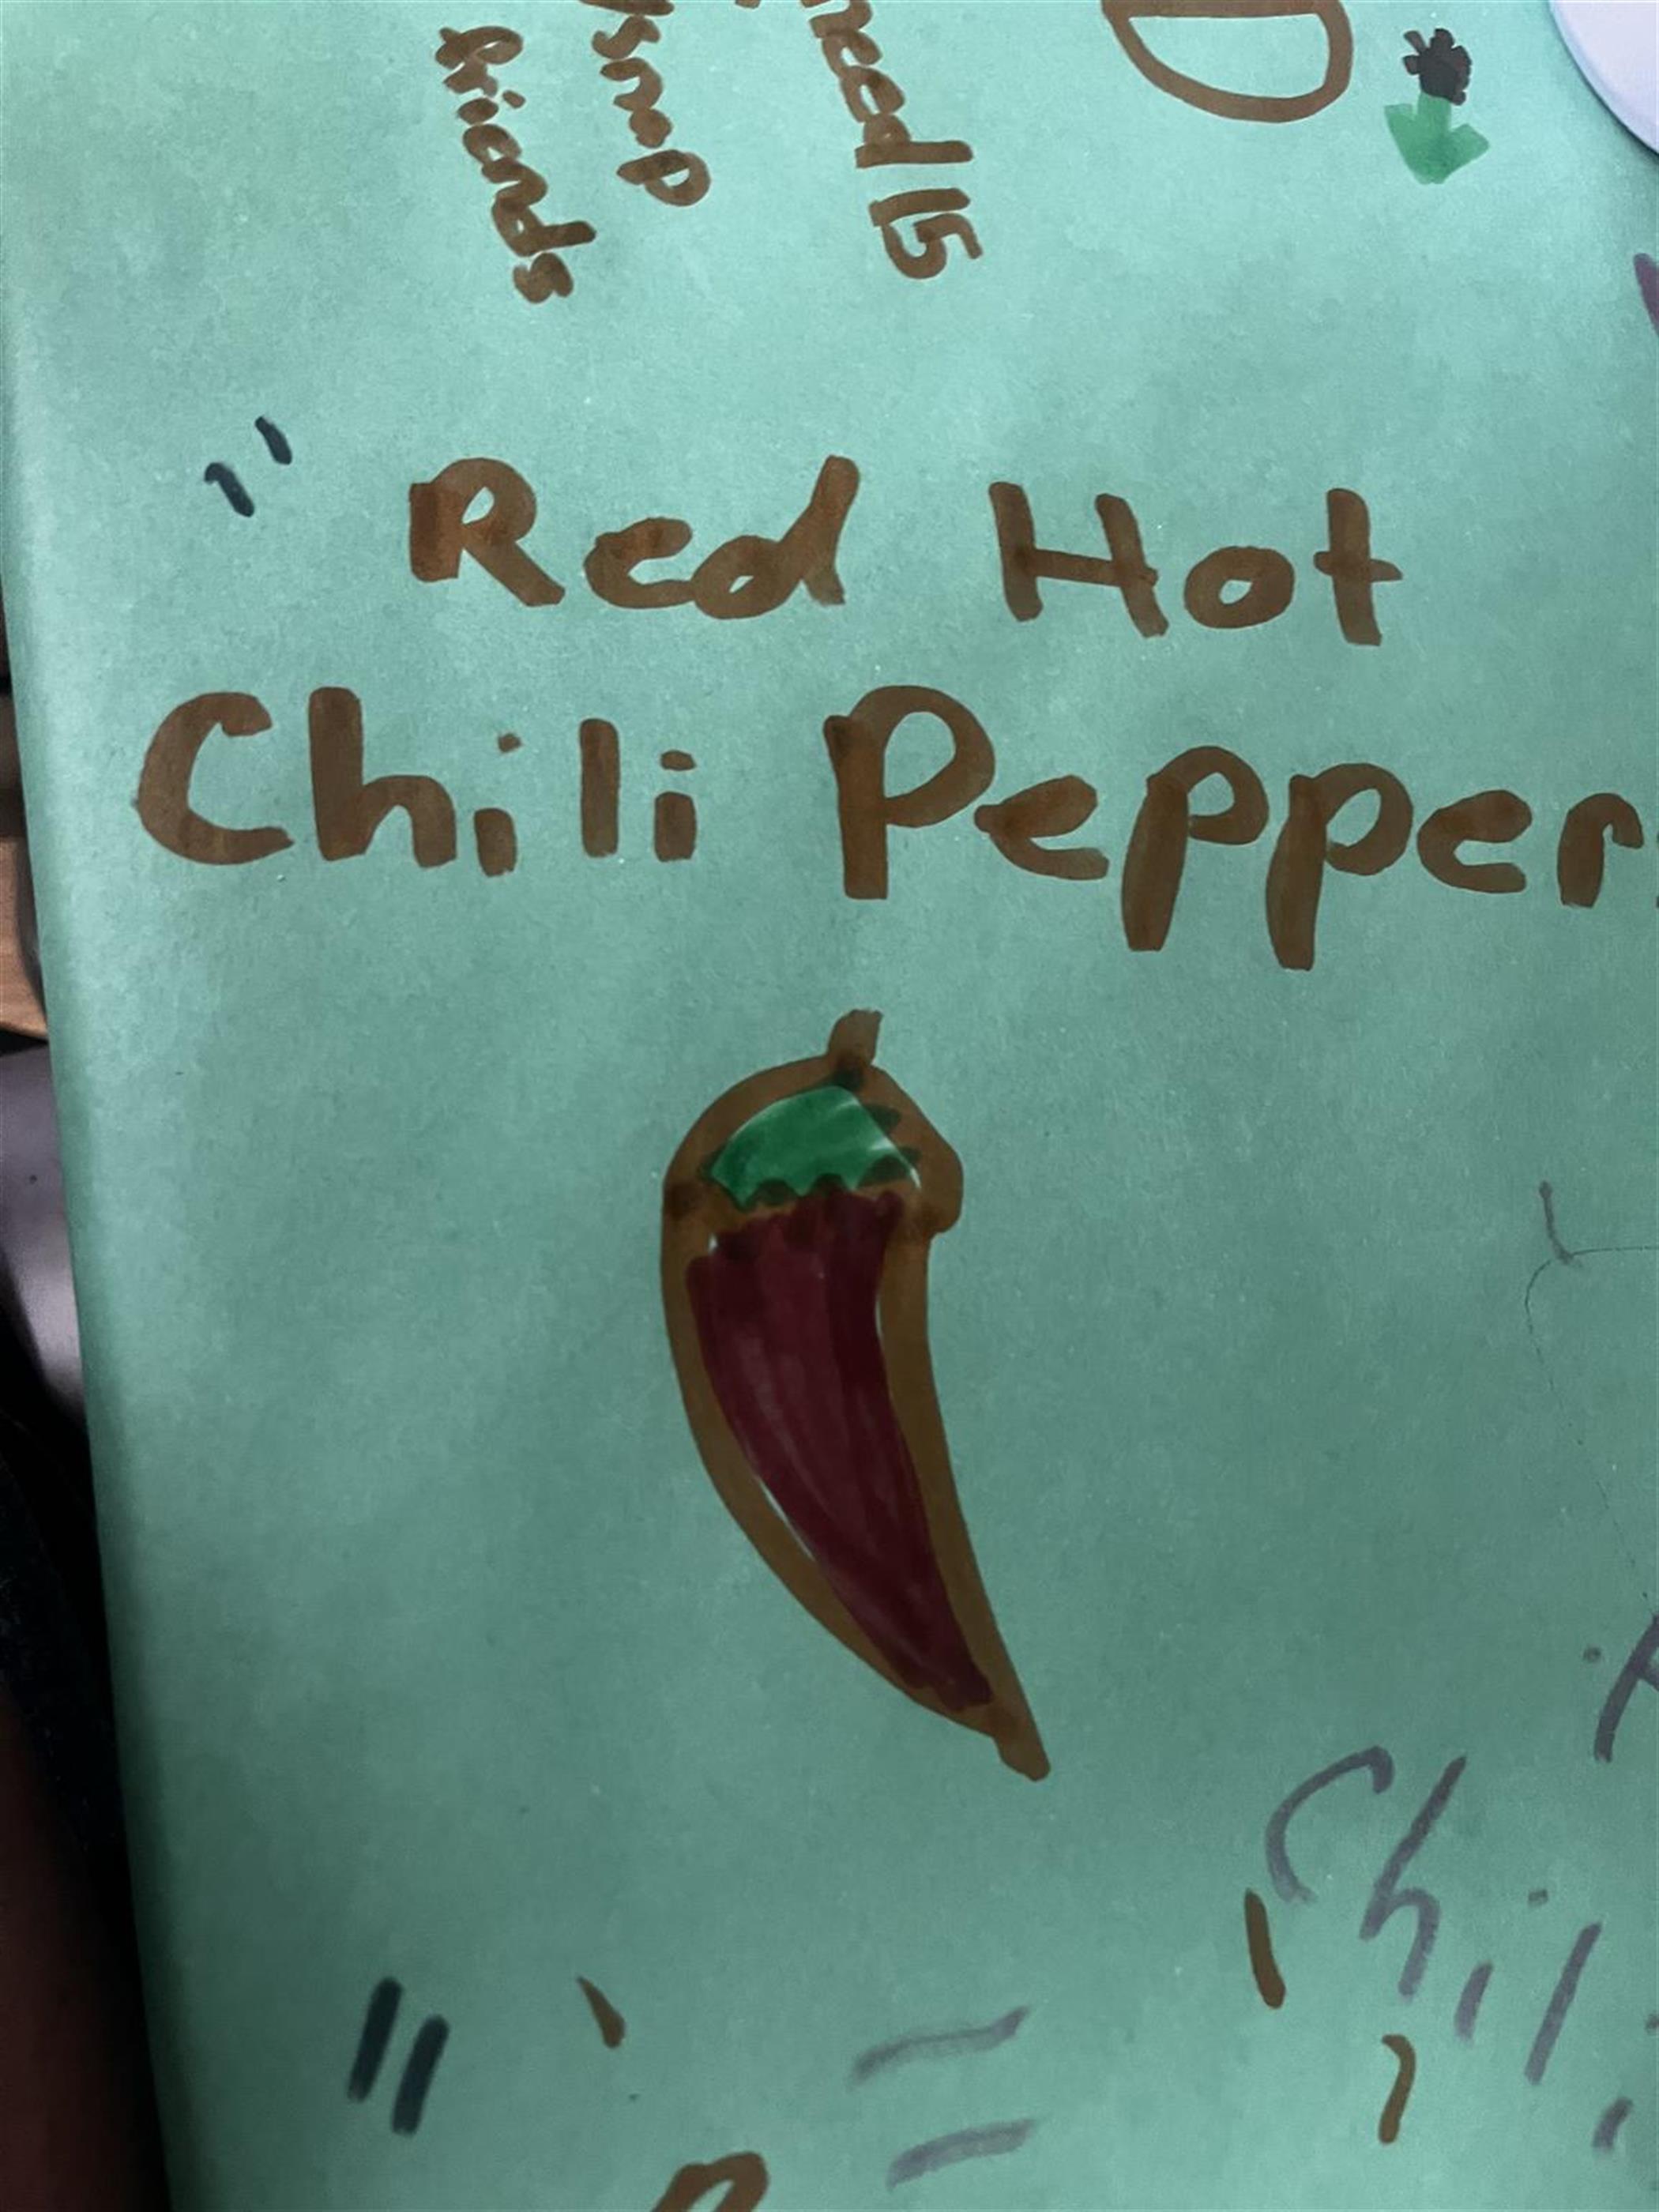 need 15
snap
friends
" Red Hot
Chili Peppers
Chili